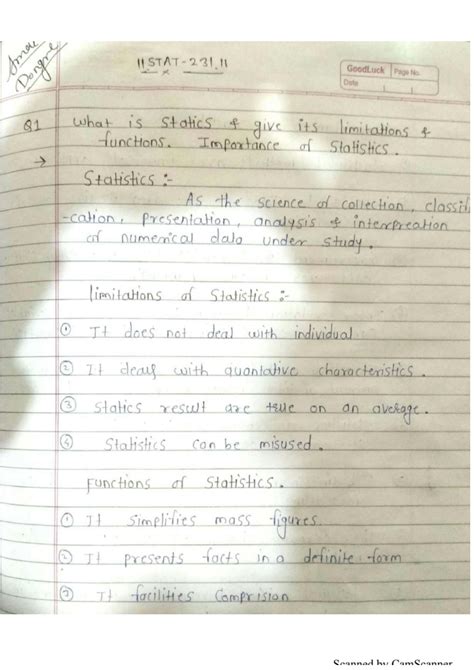 Dongre
॥STAT-231॥
GoodLuck Page No.
Date
Q1 What is Statics & give its limitations &
functions. Importance of Statistics.
→
Statistics :-
As the science of collection, classifi
-cation, presentation, analysis & interpreation
of numerical data under study.
limitations of Statistics :-
① It does not deal with individual
② It deals with quantative characteristics.
③ Statics result are true on an average.
④ Statistics can be misused.
Functions of Statistics.
① It simplifies mass figures.
② It presents facts in a definite form
③ It facilities Comprision
Scanned by CamScanner